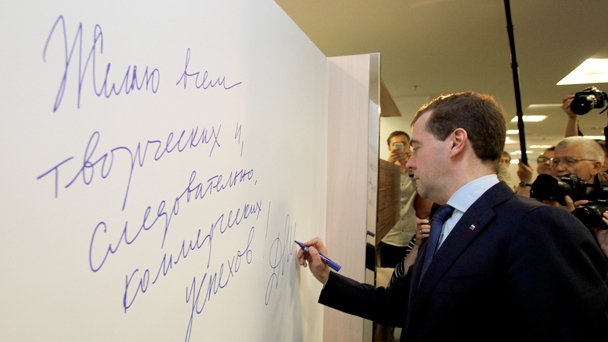 Желаю всем
творческих и,
следовательно,
коммерческих
успехов!